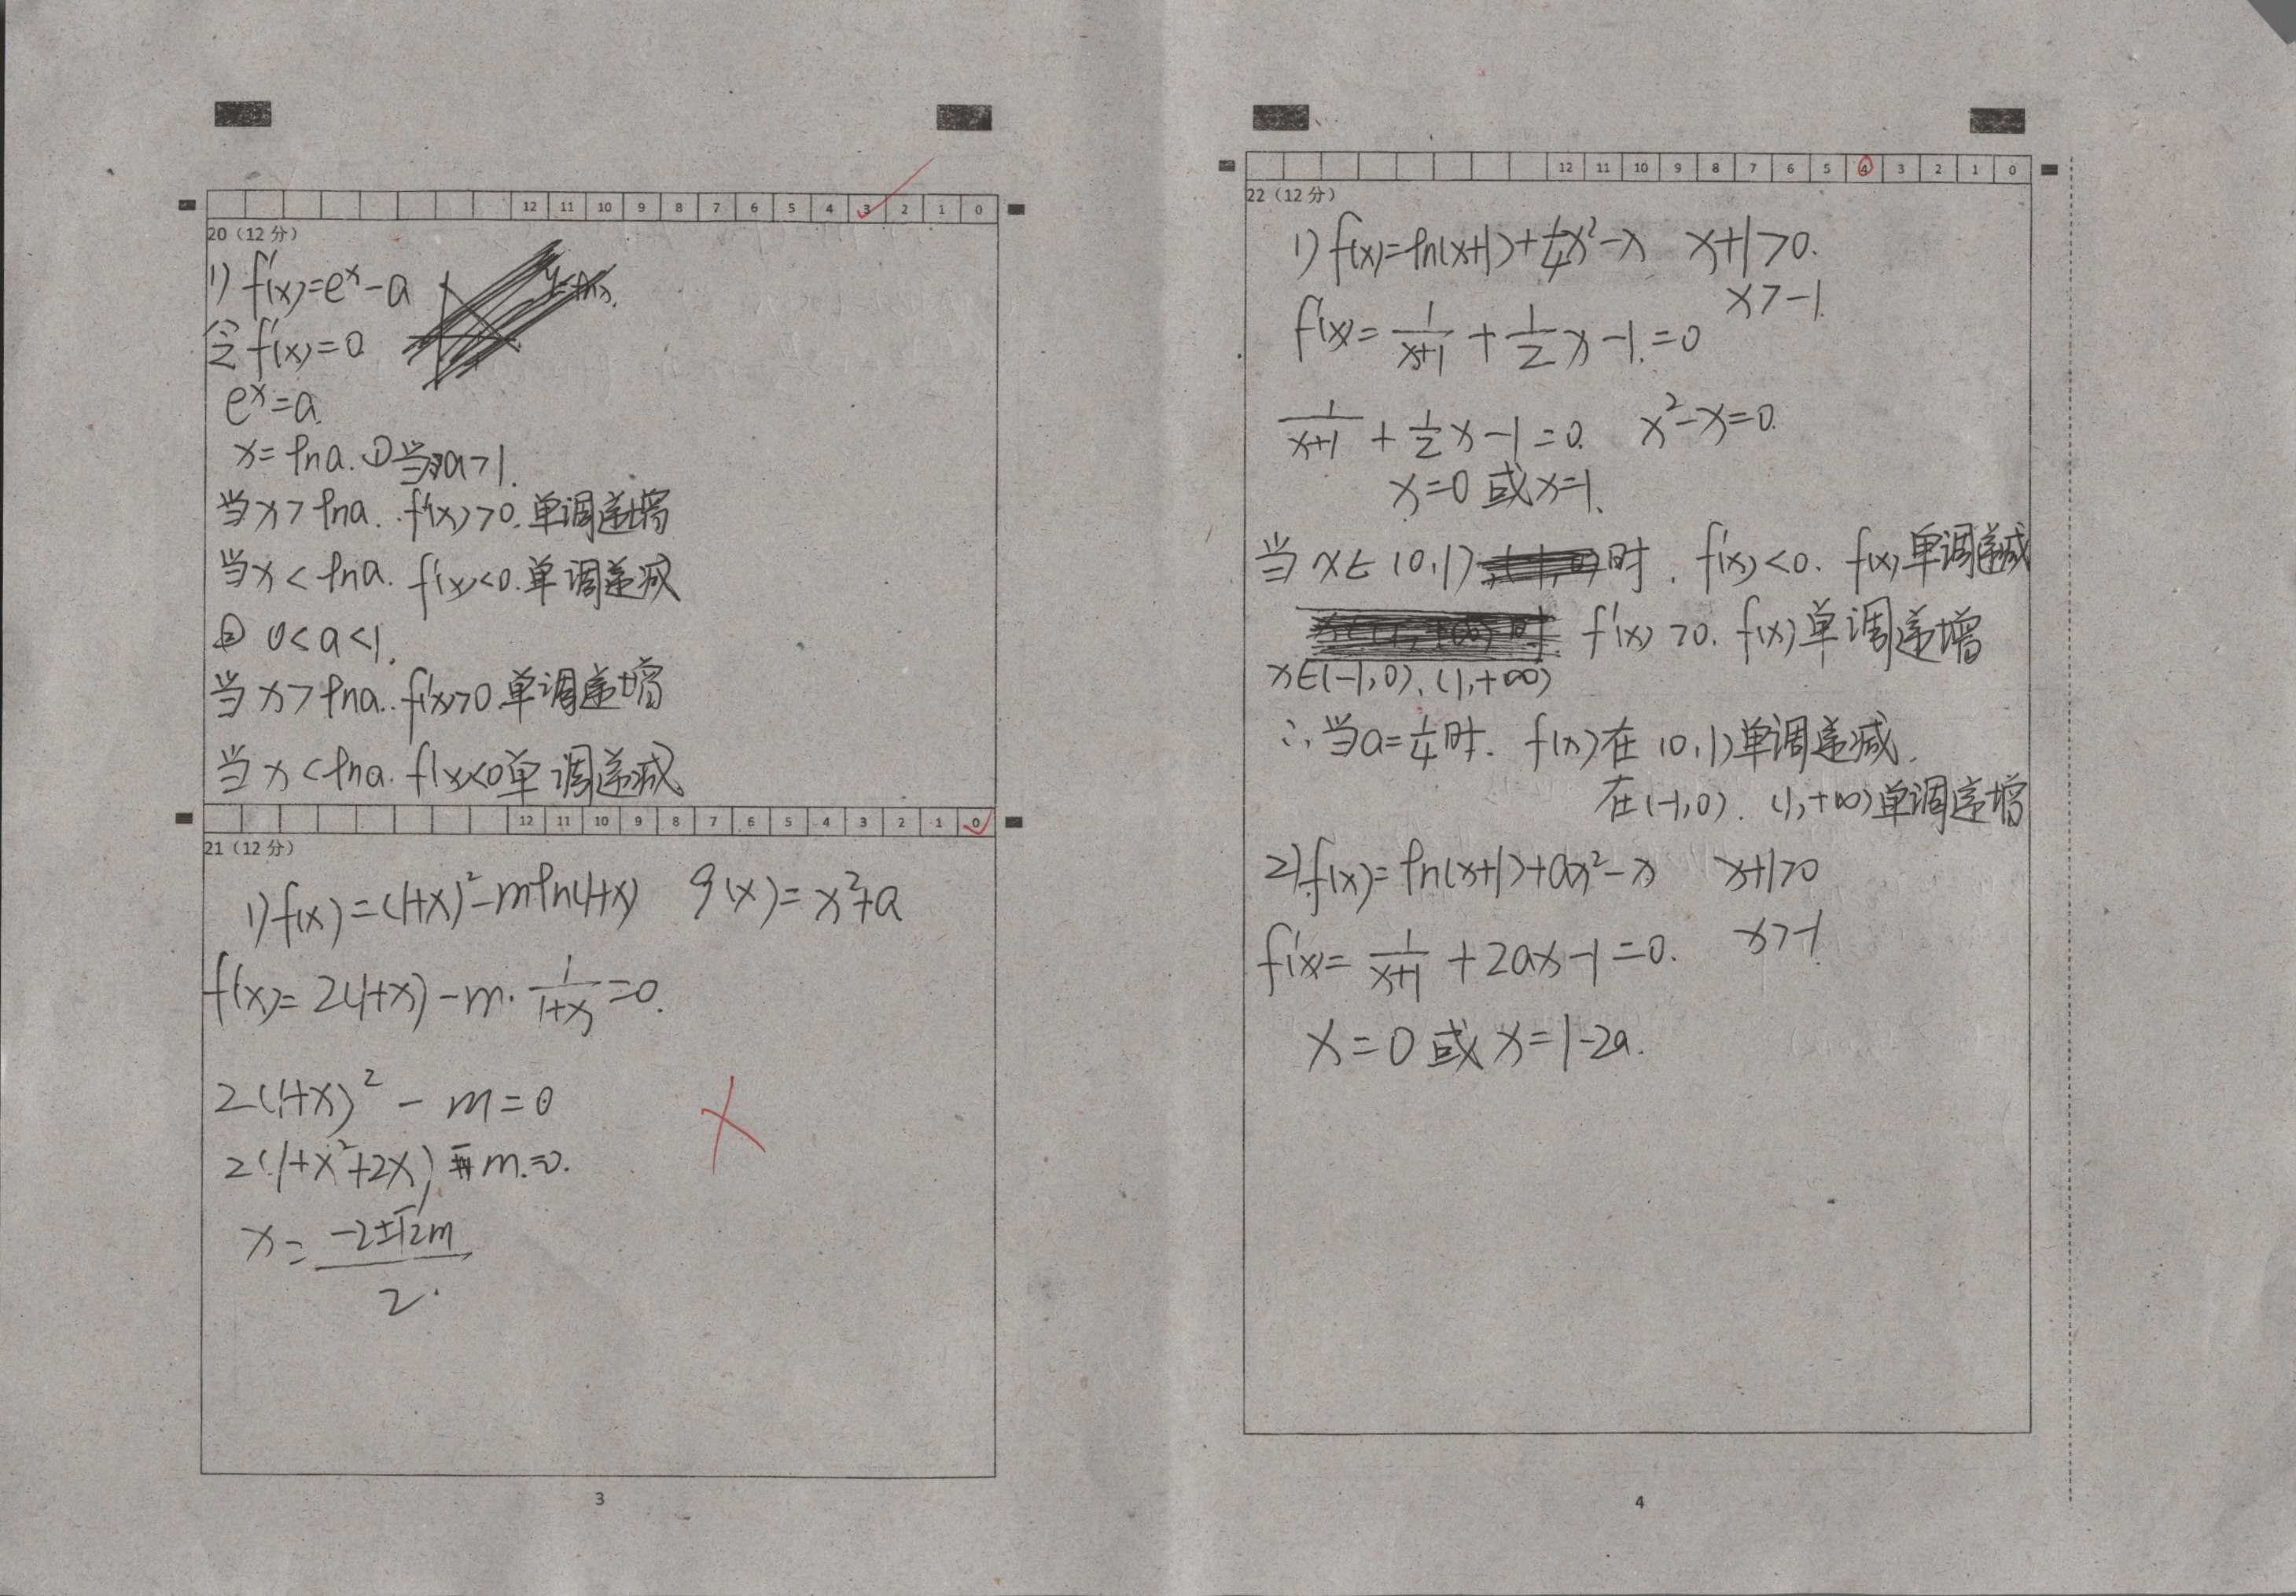 12 11 10 9 8 7 6 5 4 3 2 1 0
20（12 分）
1) f'(x)=e^x-a
令 f'(x)=0
e^x=a.
x=lna. ①当a>1.
当x>lna. f'(x)>0.单调递增
当x<lna. f'(x)<0.单调递减
② 0<a<1.
当x>lna. f'(x)>0 单调递增
当x<lna. f'(x)<0单调递减
12 11 10 9 8 7 6 5 4 3 2 1 0
21（12 分）
1) f(x)=(1+x)²-mln(1+x) g(x)=x²+a
f'(x)=2(1+x)-m·1/(1+x)=0.
2(1+x)²-m=0
2(1+x²+2x)-m=0.
x=(-2±√2m)/2.
3
12 11 10 9 8 7 6 5 4 3 2 1 0
22（12 分）
1) f(x)=ln(x+1)+1/4x²-x x+1>0.
x>-1.
f'(x)=1/(x+1)+1/2x-1.=0
1/(x+1)+1/2x-1=0. x²-x=0.
x=0 或x=1.
当x∈(0,1)时. f'(x)<0. f(x)单调递减
f'(x)>0. f(x)单调递增
x∈(-1,0)、(1,+∞)
∴当a=1/4时. f(x)在(0,1)单调递减.
在(-1,0). (1,+∞)单调递增
2) f(x)=ln(x+1)+ax²-x x+1>0
f'(x)=1/(x+1)+2ax-1=0. x>-1
x=0 或 x=1-2a.
4